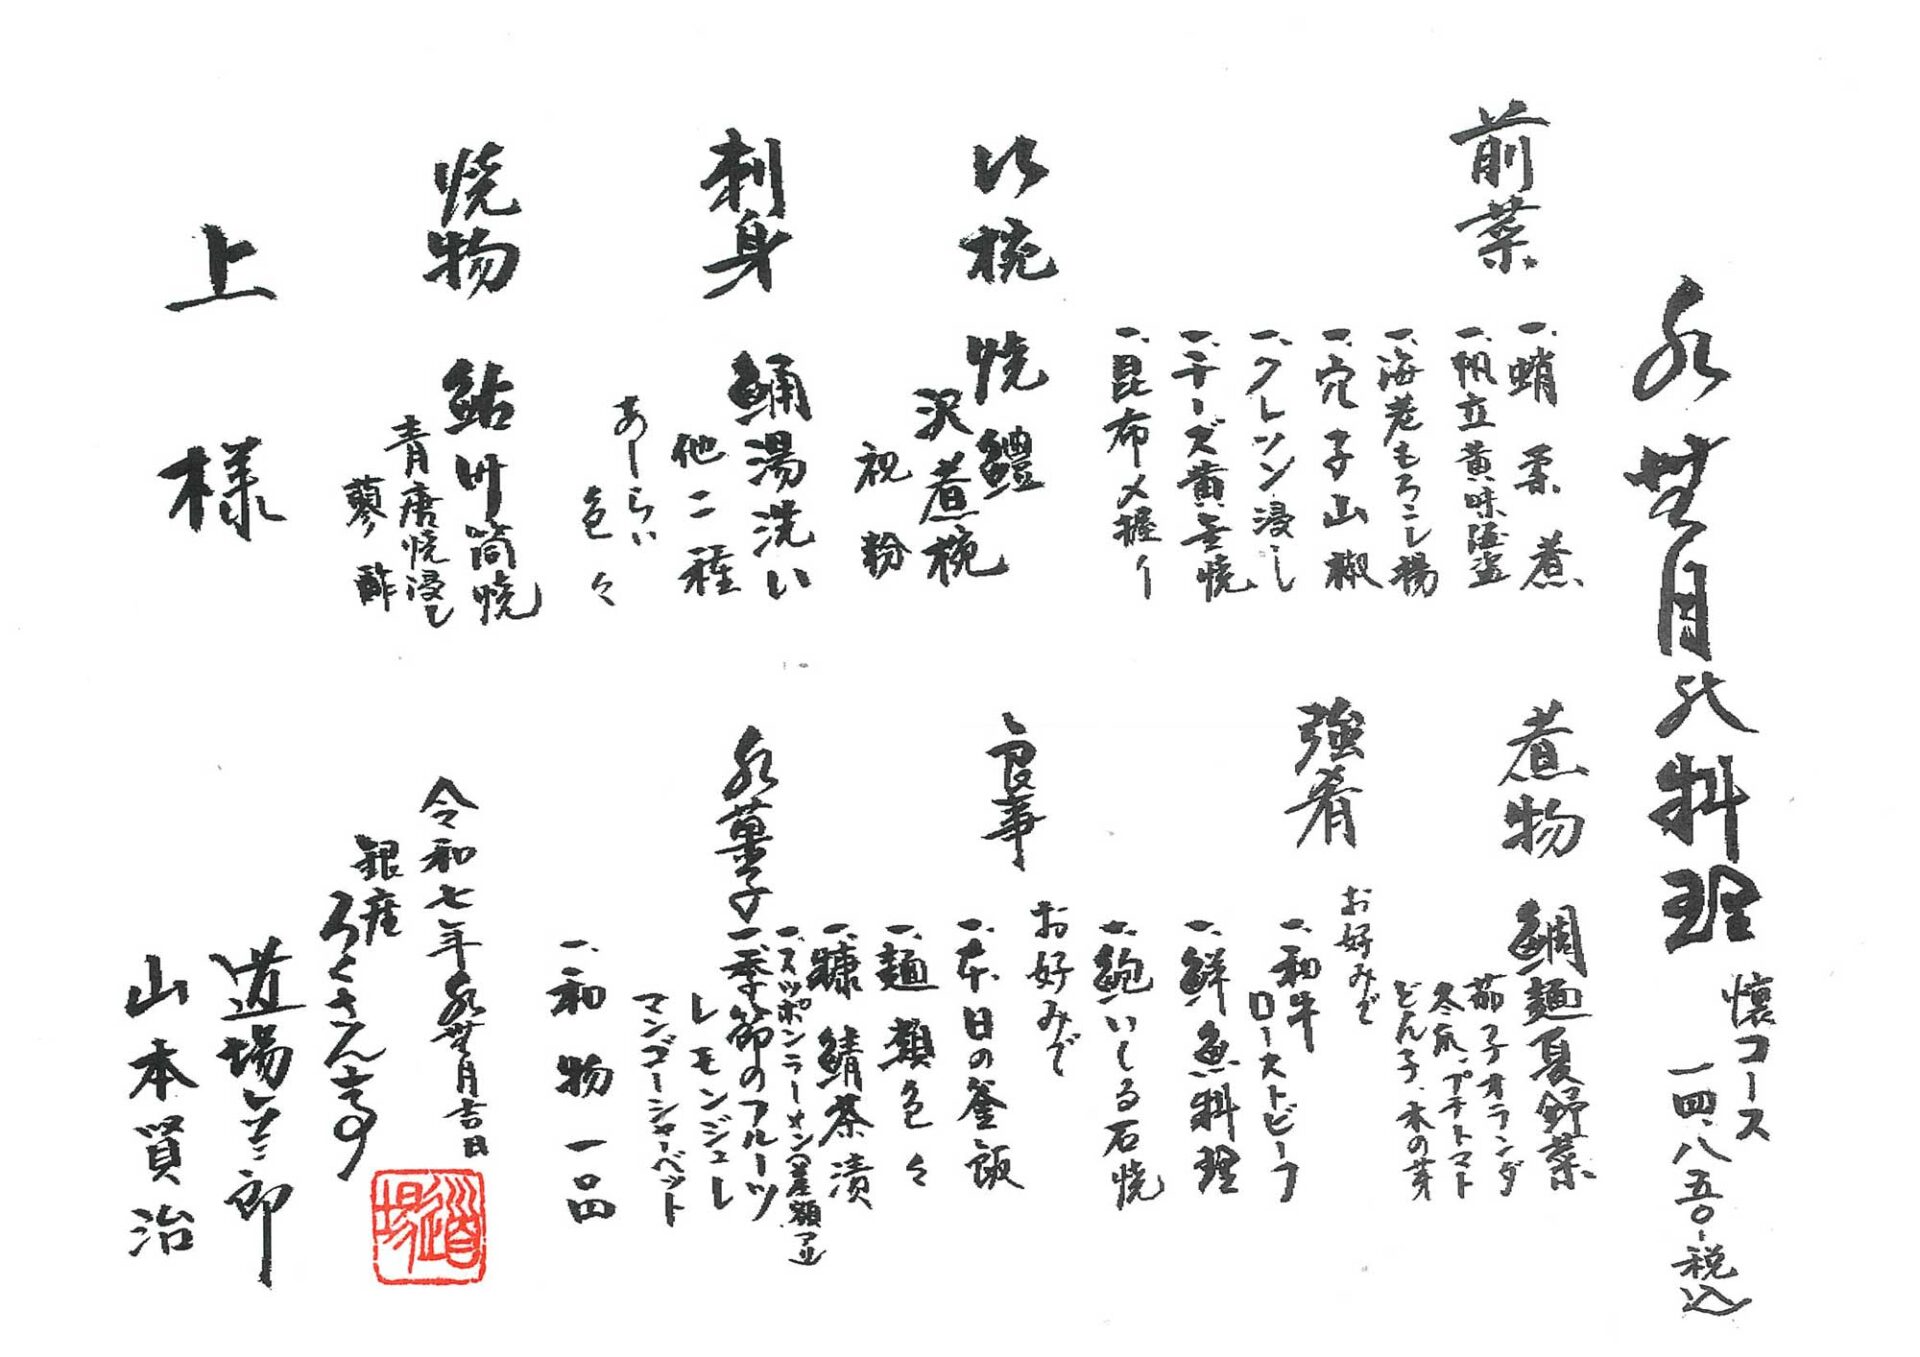 水無月の料理
懐コース
一四、八五〇-税込
前菜
一、蛸柔煮
一、帆立黄味酒盗
一、海老もろこし揚
一、穴子山椒
一、クレソン浸し
一、チーズ黄金焼
一、昆布〆握り
椀
焼鱧
沢煮椀
祝粉
刺身
鯒湯洗い
他二種
あしらい
色々
焼物
鮎竹筒焼
青唐焼浸し
蓼酢
上様
煮物
鯛麺夏野菜
茄子オランダ
冬瓜、プチトマト
どん子、木の芽
強肴
お好みで
一、和牛
ローストビーフ
一、鮮魚料理
一、鮑いしる石焼
食事
お好みで
一、本日の釜飯
一、麺類色々
一、糠鯖茶漬
一、スッポンラーメン(差額アリ)
水菓子
一、季節のフルーツ
レモンジュレ
マンゴーシャーベット
一、和物一品
令和七年水無月吉日
銀座
ろくさん亭
道場六三郎
山本賢治
道場